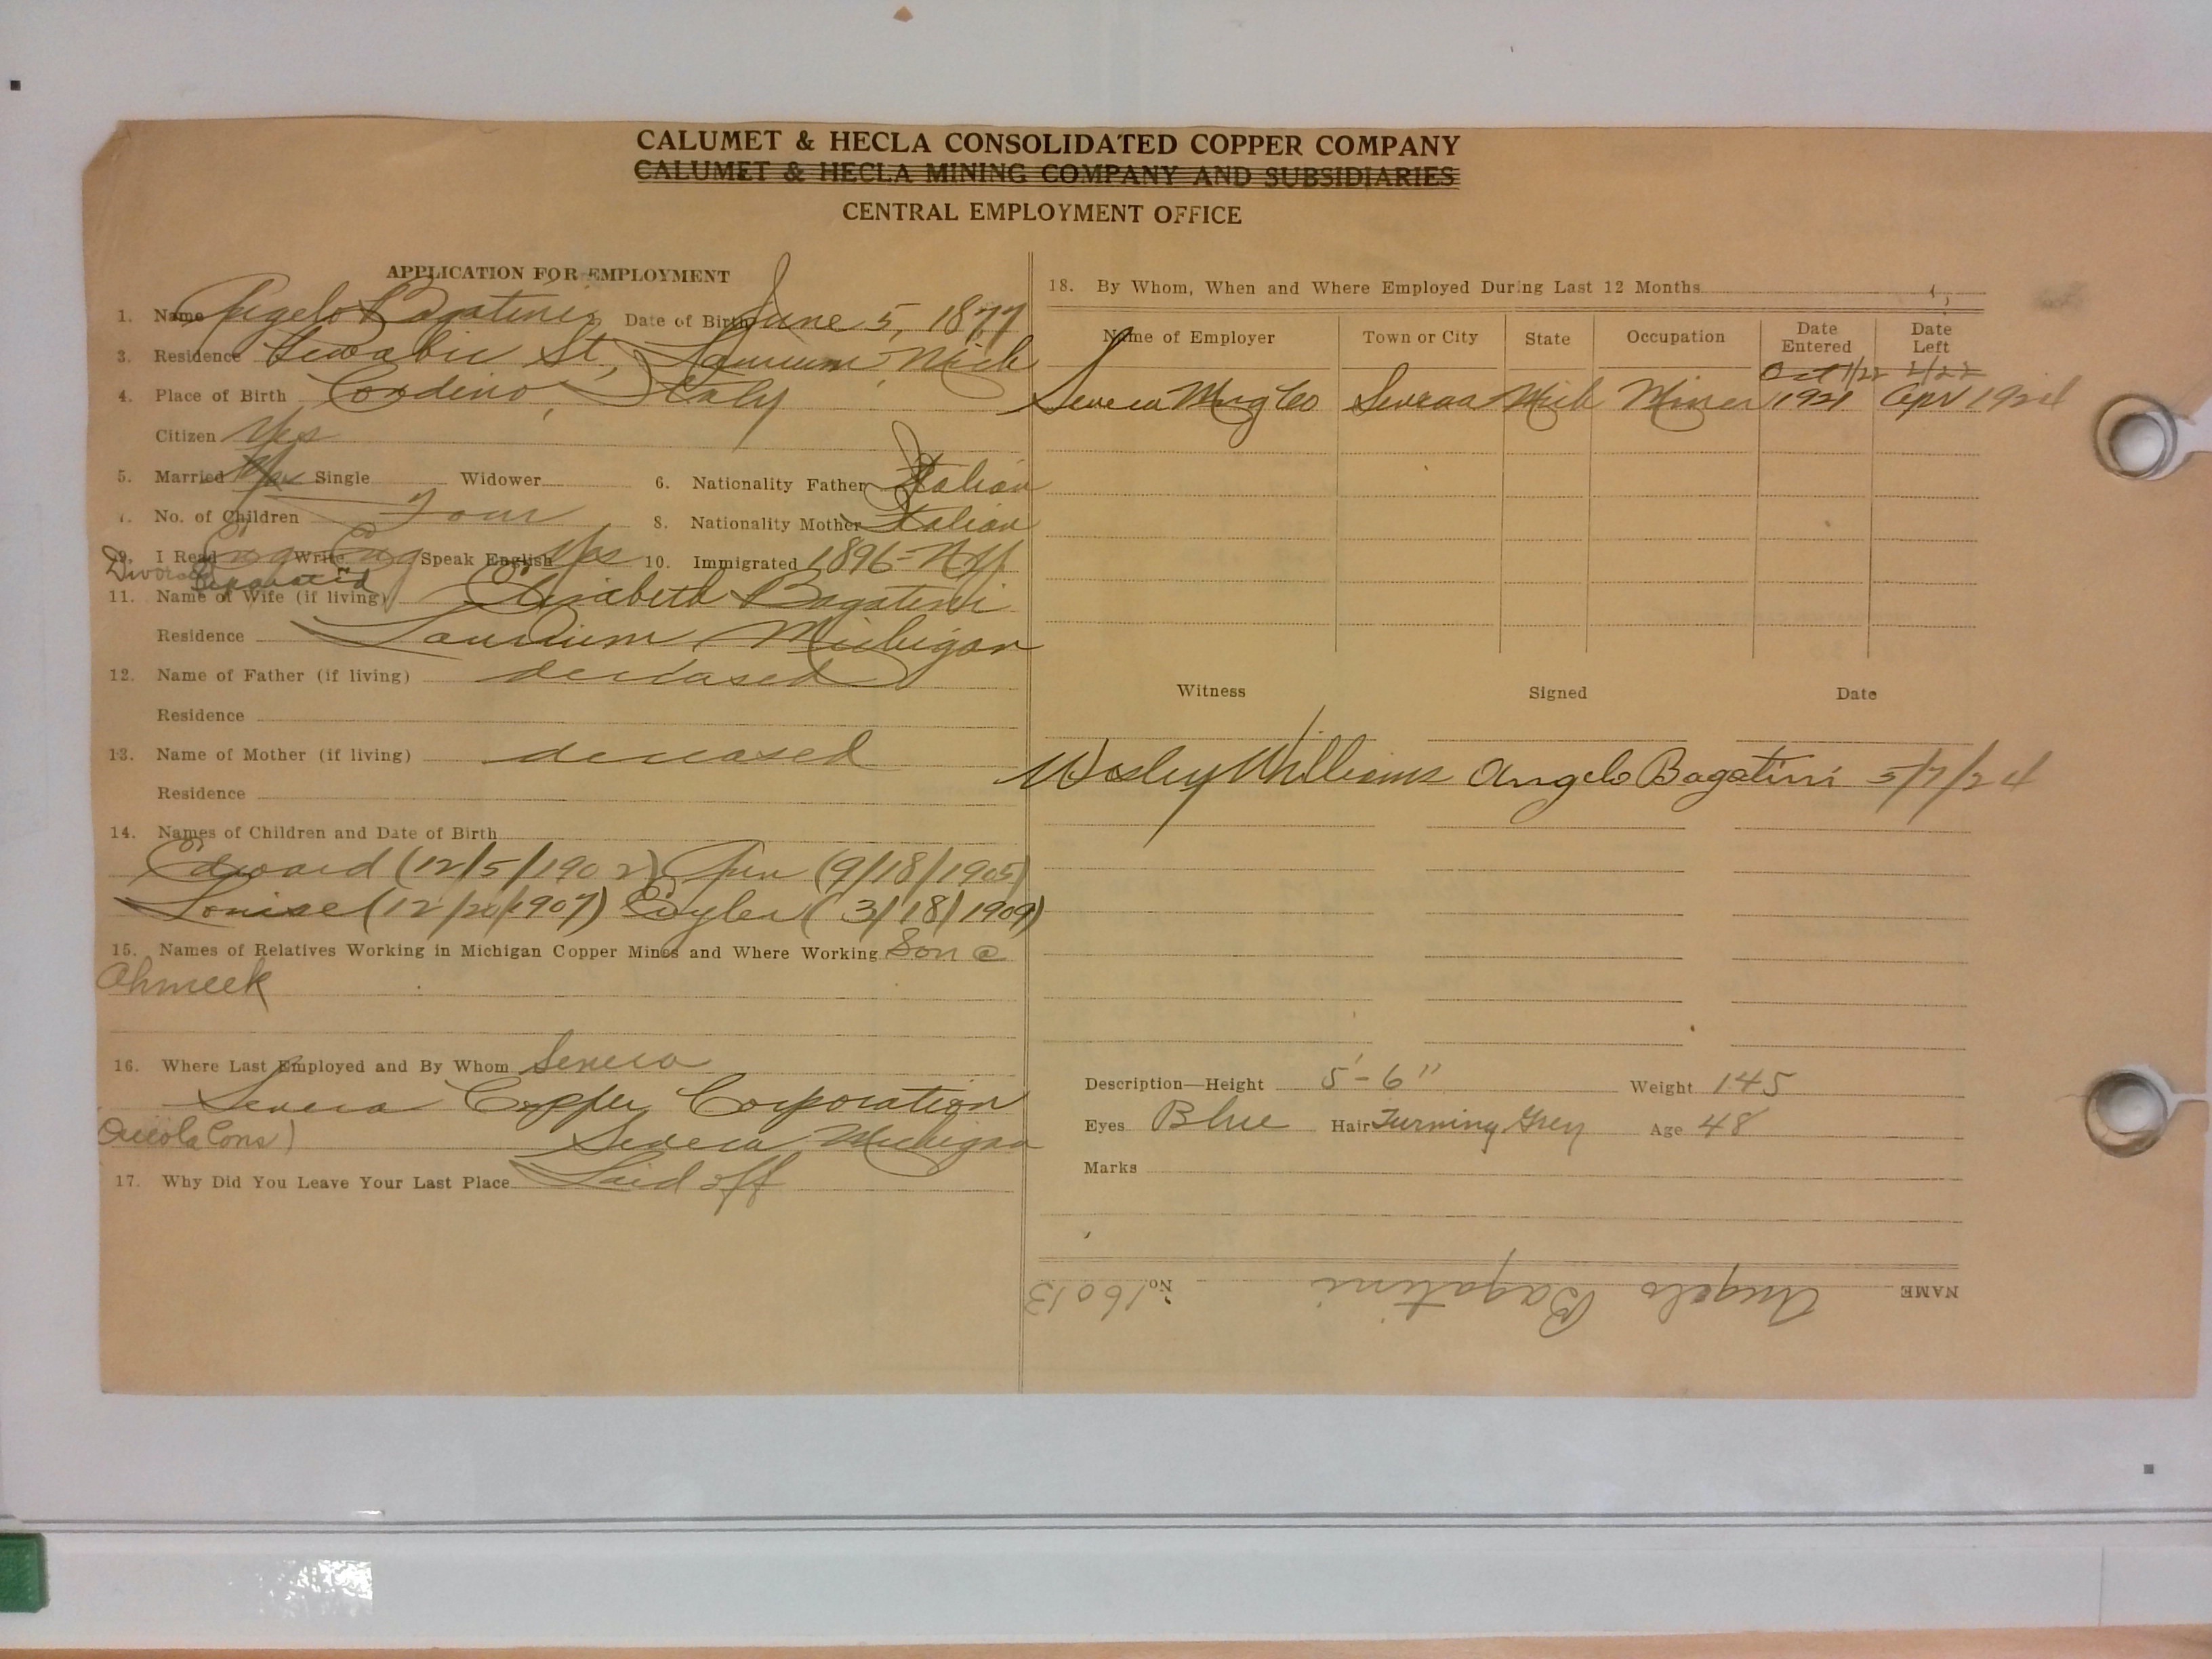 CALUMET & HECLA CONSOLIDATED COPPER COMPANY
CALUMET & HECLA MINING COMPANY AND SUBSIDIARIES
CENTRAL EMPLOYMENT OFFICE
APPLICATION FOR EMPLOYMENT
1. Name Angelo Bagatini Date of Birth June 5, 1877
3. Residence Iwabic St, Laurium, Mich
4. Place of Birth Cordino, Italy
Citizen Yes
5. Married Yes Single Widower 6. Nationality Father Italian
7. No. of Children Four 8. Nationality Mother Italian
9. I Read Eng Write Eng Speak English Yes 10. Immigrated 1896 - NY
Divorced Separated
11. Name of Wife (if living) Elizabeth Bagatini
Residence Laurium, Michigan
12. Name of Father (if living) deceased
Residence
13. Name of Mother (if living) deceased
Residence
14. Names of Children and Date of Birth
Edward (12/5/1902) (9/18/1905)
Louise (12/20/1907) (3/18/1909)
15. Names of Relatives Working in Michigan Copper Mines and Where Working Son @
Ahmeek
16. Where Last Employed and By Whom Seneca
Seneca Copper Corporation
(Osceola Cons) Seneca, Michigan
17. Why Did You Leave Your Last Place Laid off
18. By Whom, When and Where Employed During Last 12 Months
Name of Employer Town or City State Occupation Date Entered Date Left
Oct 1/22 2/22
Seneca Mng Co Seneca Mich Miner 1921 Apr 1924
Witness Signed Date
Wesley Williams Angelo Bagatini 5/7/24
Description—Height 5'-6" Weight 145
Eyes Blue Hair Turning Grey Age 48
Marks
NAME Angelo Bagatini No. 16013